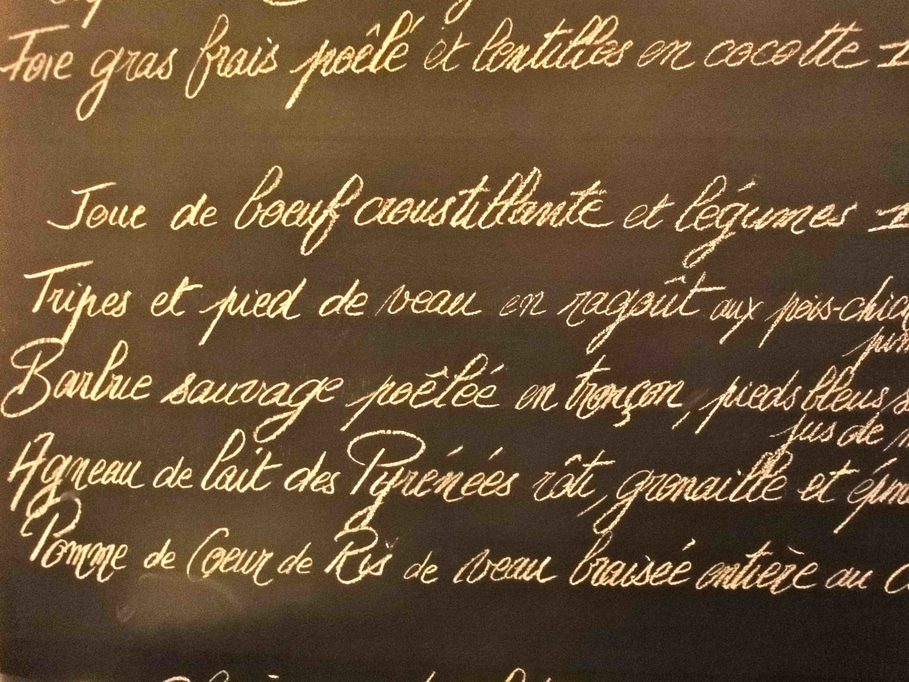 Foie gras frais poêlé et lentilles en cocotte 1
Joue de boeuf croustillante et légumes 1
Tripes et pied de veau en ragoût aux pois-chic
Barbue sauvage poêlée en tronçon, pieds bleus
jus de
Agneau de lait des Pyrénées rôti, grenaille et
Pomme de Coeur de Ris de veau braisée entière au